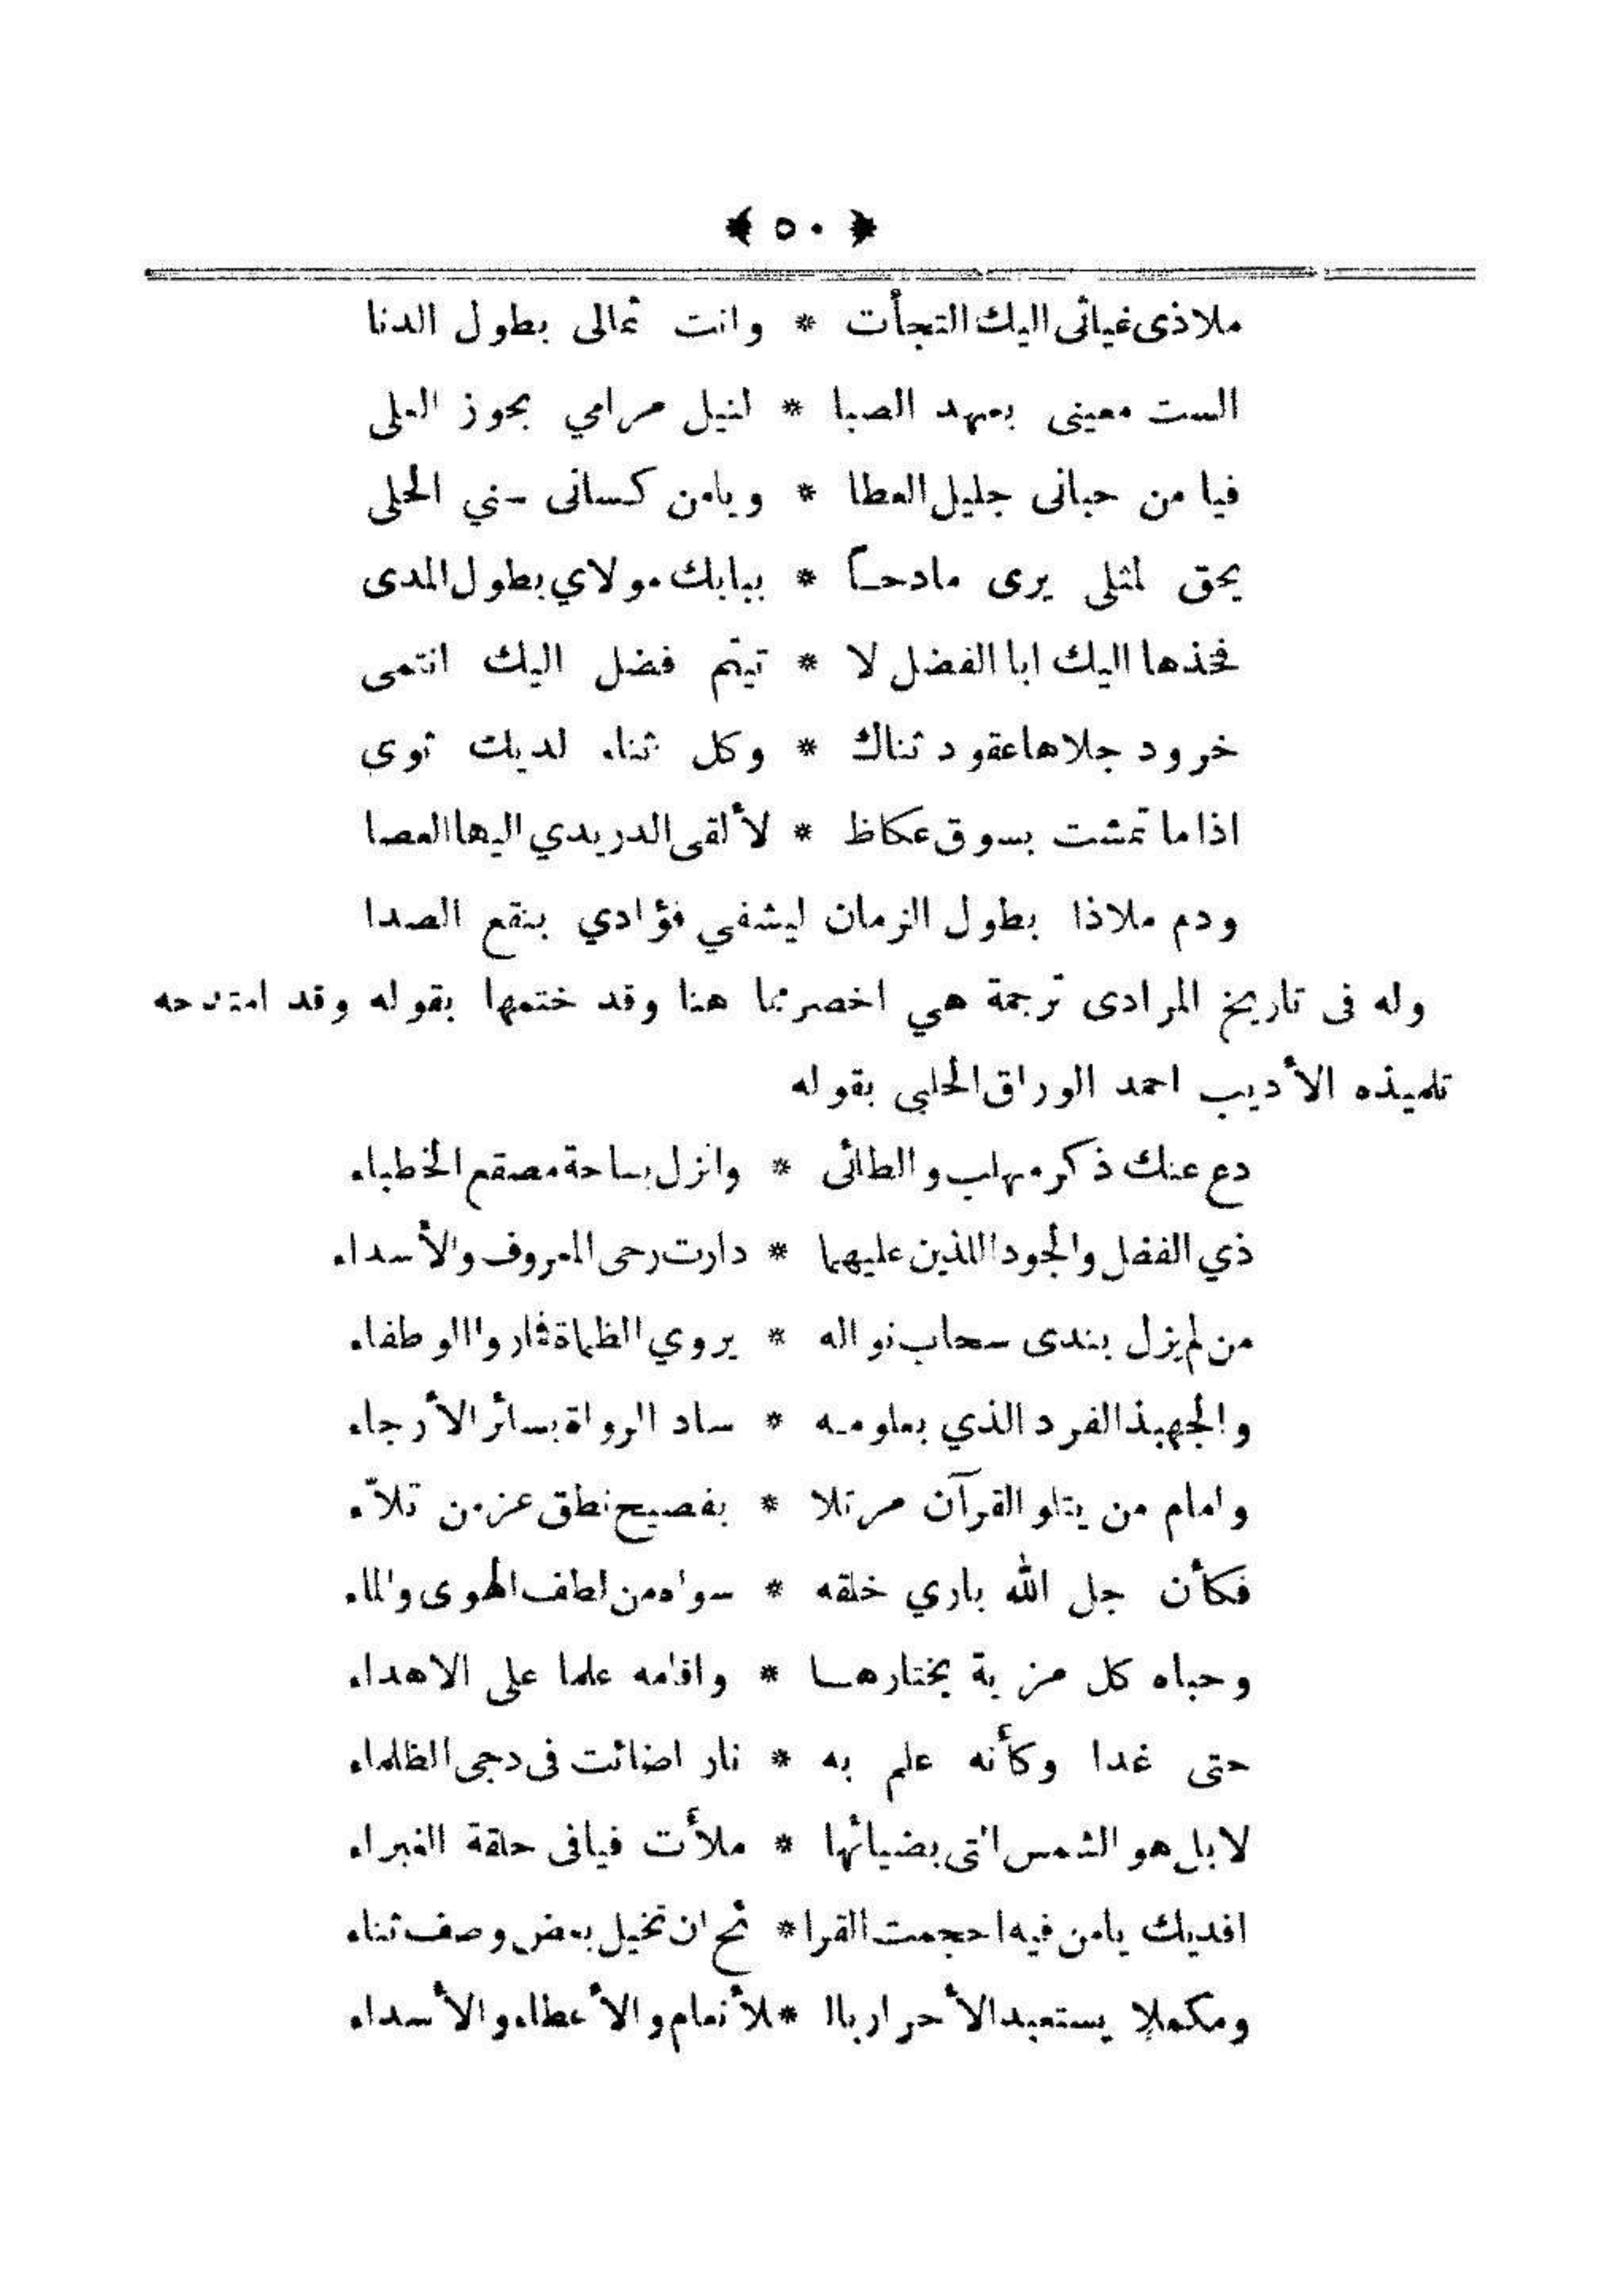 ﴿ ٥٠ ﴾
ملاذى غياثى اليك التجأت * وانت ثمالى بطول الدنا
الست معينى بمهد الصبا * لنيل مرامي بحوز العلى
فيا من حبانى جليل العطا * ويامن كسانى سني الحلى
يحق لمثلى يرى مادحاً * ببابك مولاي بطول المدى
فخذها اليك ابا الفضل لا * تيتم فضل اليك انتمى
خرود جلاها عقود ثناك * وكل ثناء لديك ثوى
اذا ما تمشت بسوق عكاظ * لألقى الدريدي اليها العصا
ودم ملاذا بطول الزمان ليشفي فؤادي بنقع الصدا
وله فى تاريخ المرادى ترجمة هي اخصر مما هنا وقد ختمها بقوله وقد امتدحه
تلميذه الأديب احمد الوراق الحلبي بقوله
دع عنك ذكر مهلب والطائى * وانزل بساحة مصقع الخطباء
ذي الفضل والجود اللذين عليهما * دارت رحى المعروف والأسداء
من لم يزل بندى سحاب نواله * يروي الظماة فاروا الوطفاء
والجهبذ الفرد الذي بعلومه * ساد الرواة بسائر الأرجاء
وامام من يتلو القرآن مرتلا * بفصيح نطق عز من تلاّء
فكأن جل الله باري خلقه * سواه من لطف الهوى والماء
وحباه كل مزية يختارها * واقامه علما على الاهداء
حتى غدا وكأنه علم به * نار اضائت فى دجى الظلماء
لا بل هو الشمس التى بضيائها * ملأت فيافى حلقة الغبراء
افديك يامن فيه احجمت القرا * ئح ان تخيل بعض وصف ثناء
ومكملا يستعبد الأحرار بالا * لأنعام والأعطاء والأسداء